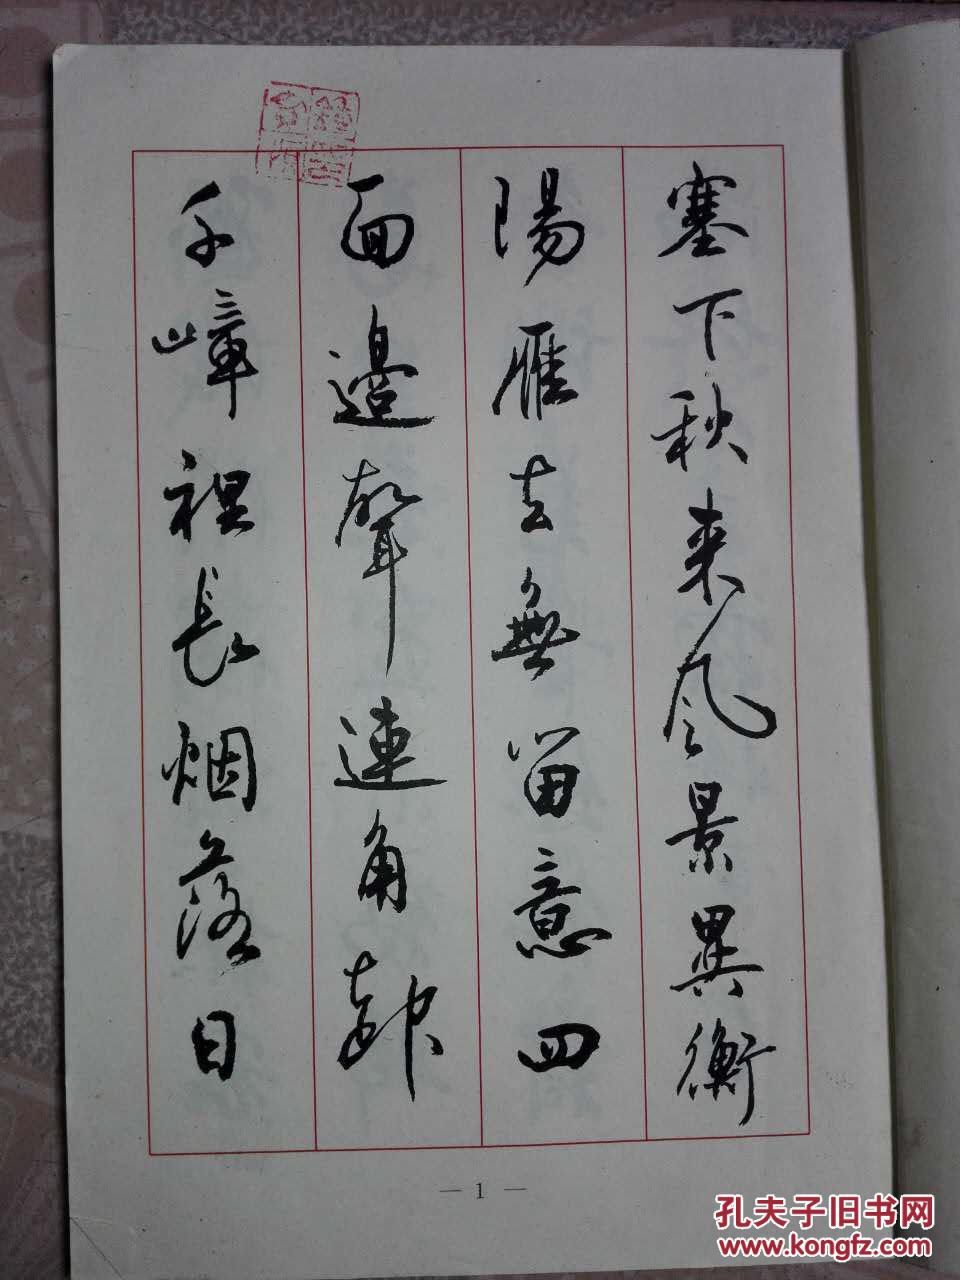 塞下秋来风景異衡
陽雁去無留意四
面邉聲連角起
千嶂裡長烟落日
— 1 —
孔夫子旧书网
www.kongfz.com